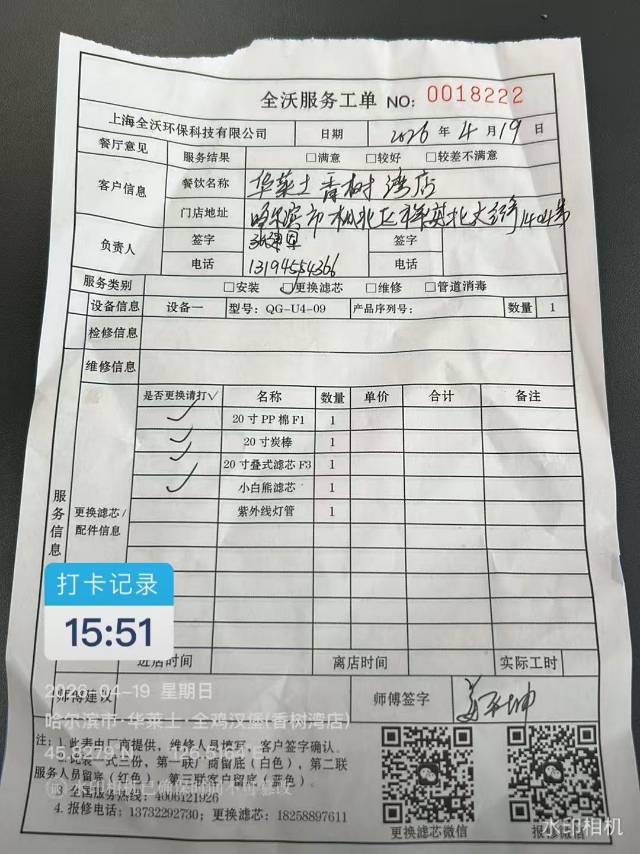 全沃服务工单 NO: 0018222
上海全沃环保科技有限公司 日期 2026 年 4 月 19 日
餐厅意见 服务结果 □满意 □较好 □较差不满意
客户信息 餐饮名称 华莱士香树湾店
门店地址 哈尔滨市松北区 北大 1404号
负责人 签字 签字
电话 13194554366 电话
服务类别 □安装 ☑更换滤芯 □维修 □管道消毒
设备信息 设备一 型号: QG-U4-09 产品序列号: 数量 1
检修信息
维修信息
服务信息
更换滤芯/配件信息
是否更换请打√ 名称 数量 单价 合计 备注
✓ 20寸PP棉F1 1
✓ 20寸炭棒 1
✓ 20寸叠式滤芯F3 1
✓ 小白熊滤芯 1
紫外线灯管 1
打卡记录
15:51
进店时间 离店时间 实际工时
2026-04-19 星期日
师傅建议 师傅签字
哈尔滨市·华莱士·全鸡汉堡(香树湾店)
注: 1.此表由厂商提供,维修人员填写,客户签字确认。
2.此装一式三份,第一联厂商留底(白色),第二联
服务人员留底(红色),第三联客户留底(蓝色)。
3.全国服务热线: 4006121926
水印相机已确保时间不可篡改
4.报修电话: 13732292730; 更换滤芯: 18258899611
更换滤芯微信 报修微信
水印相机